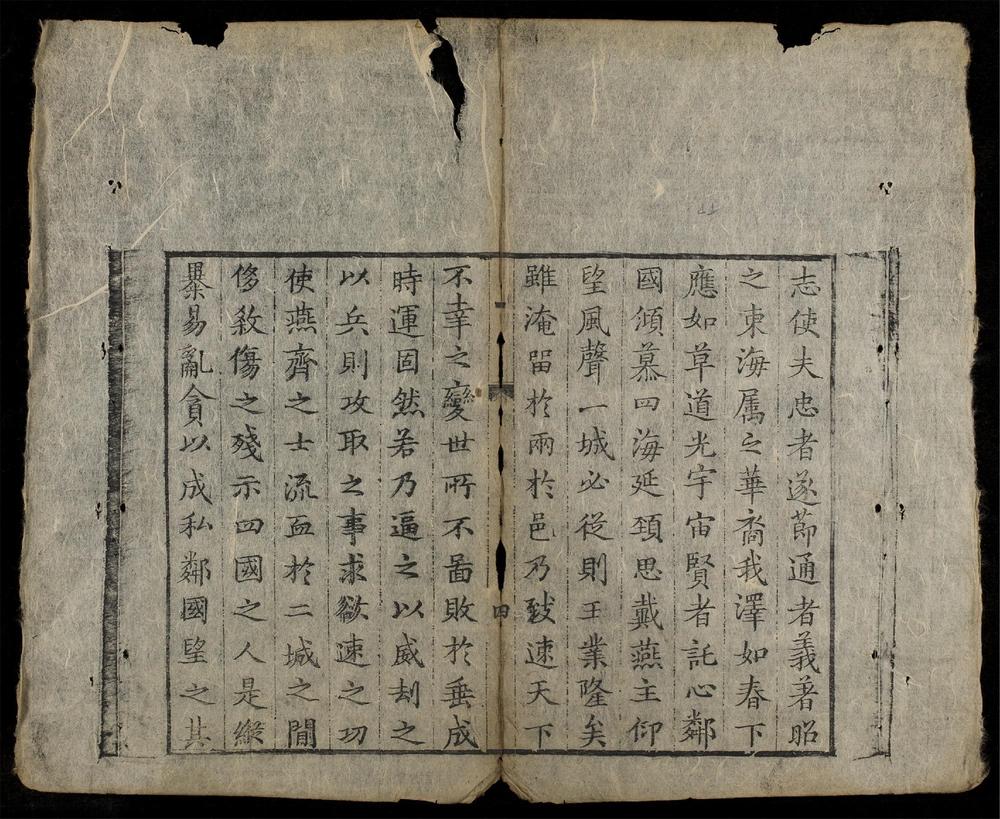 志使夫忠者遂節通者義著昭
之東海属之華裔我澤如春下
應如草道光宇宙賢者託心鄰
國傾慕四海延頸思戴燕主仰
望風聲一城必從則王業隆矣
雖淹留於兩於邑乃致速天下
四
不幸之變世所不啚敗於垂成
時運固然若乃逼之以威刼之
以兵則攻取之事求欲速之功
使燕齊之士流血於二城之間
侈敘傷之殘示四國之人是縱
暴易亂貪以成私鄰國望之其